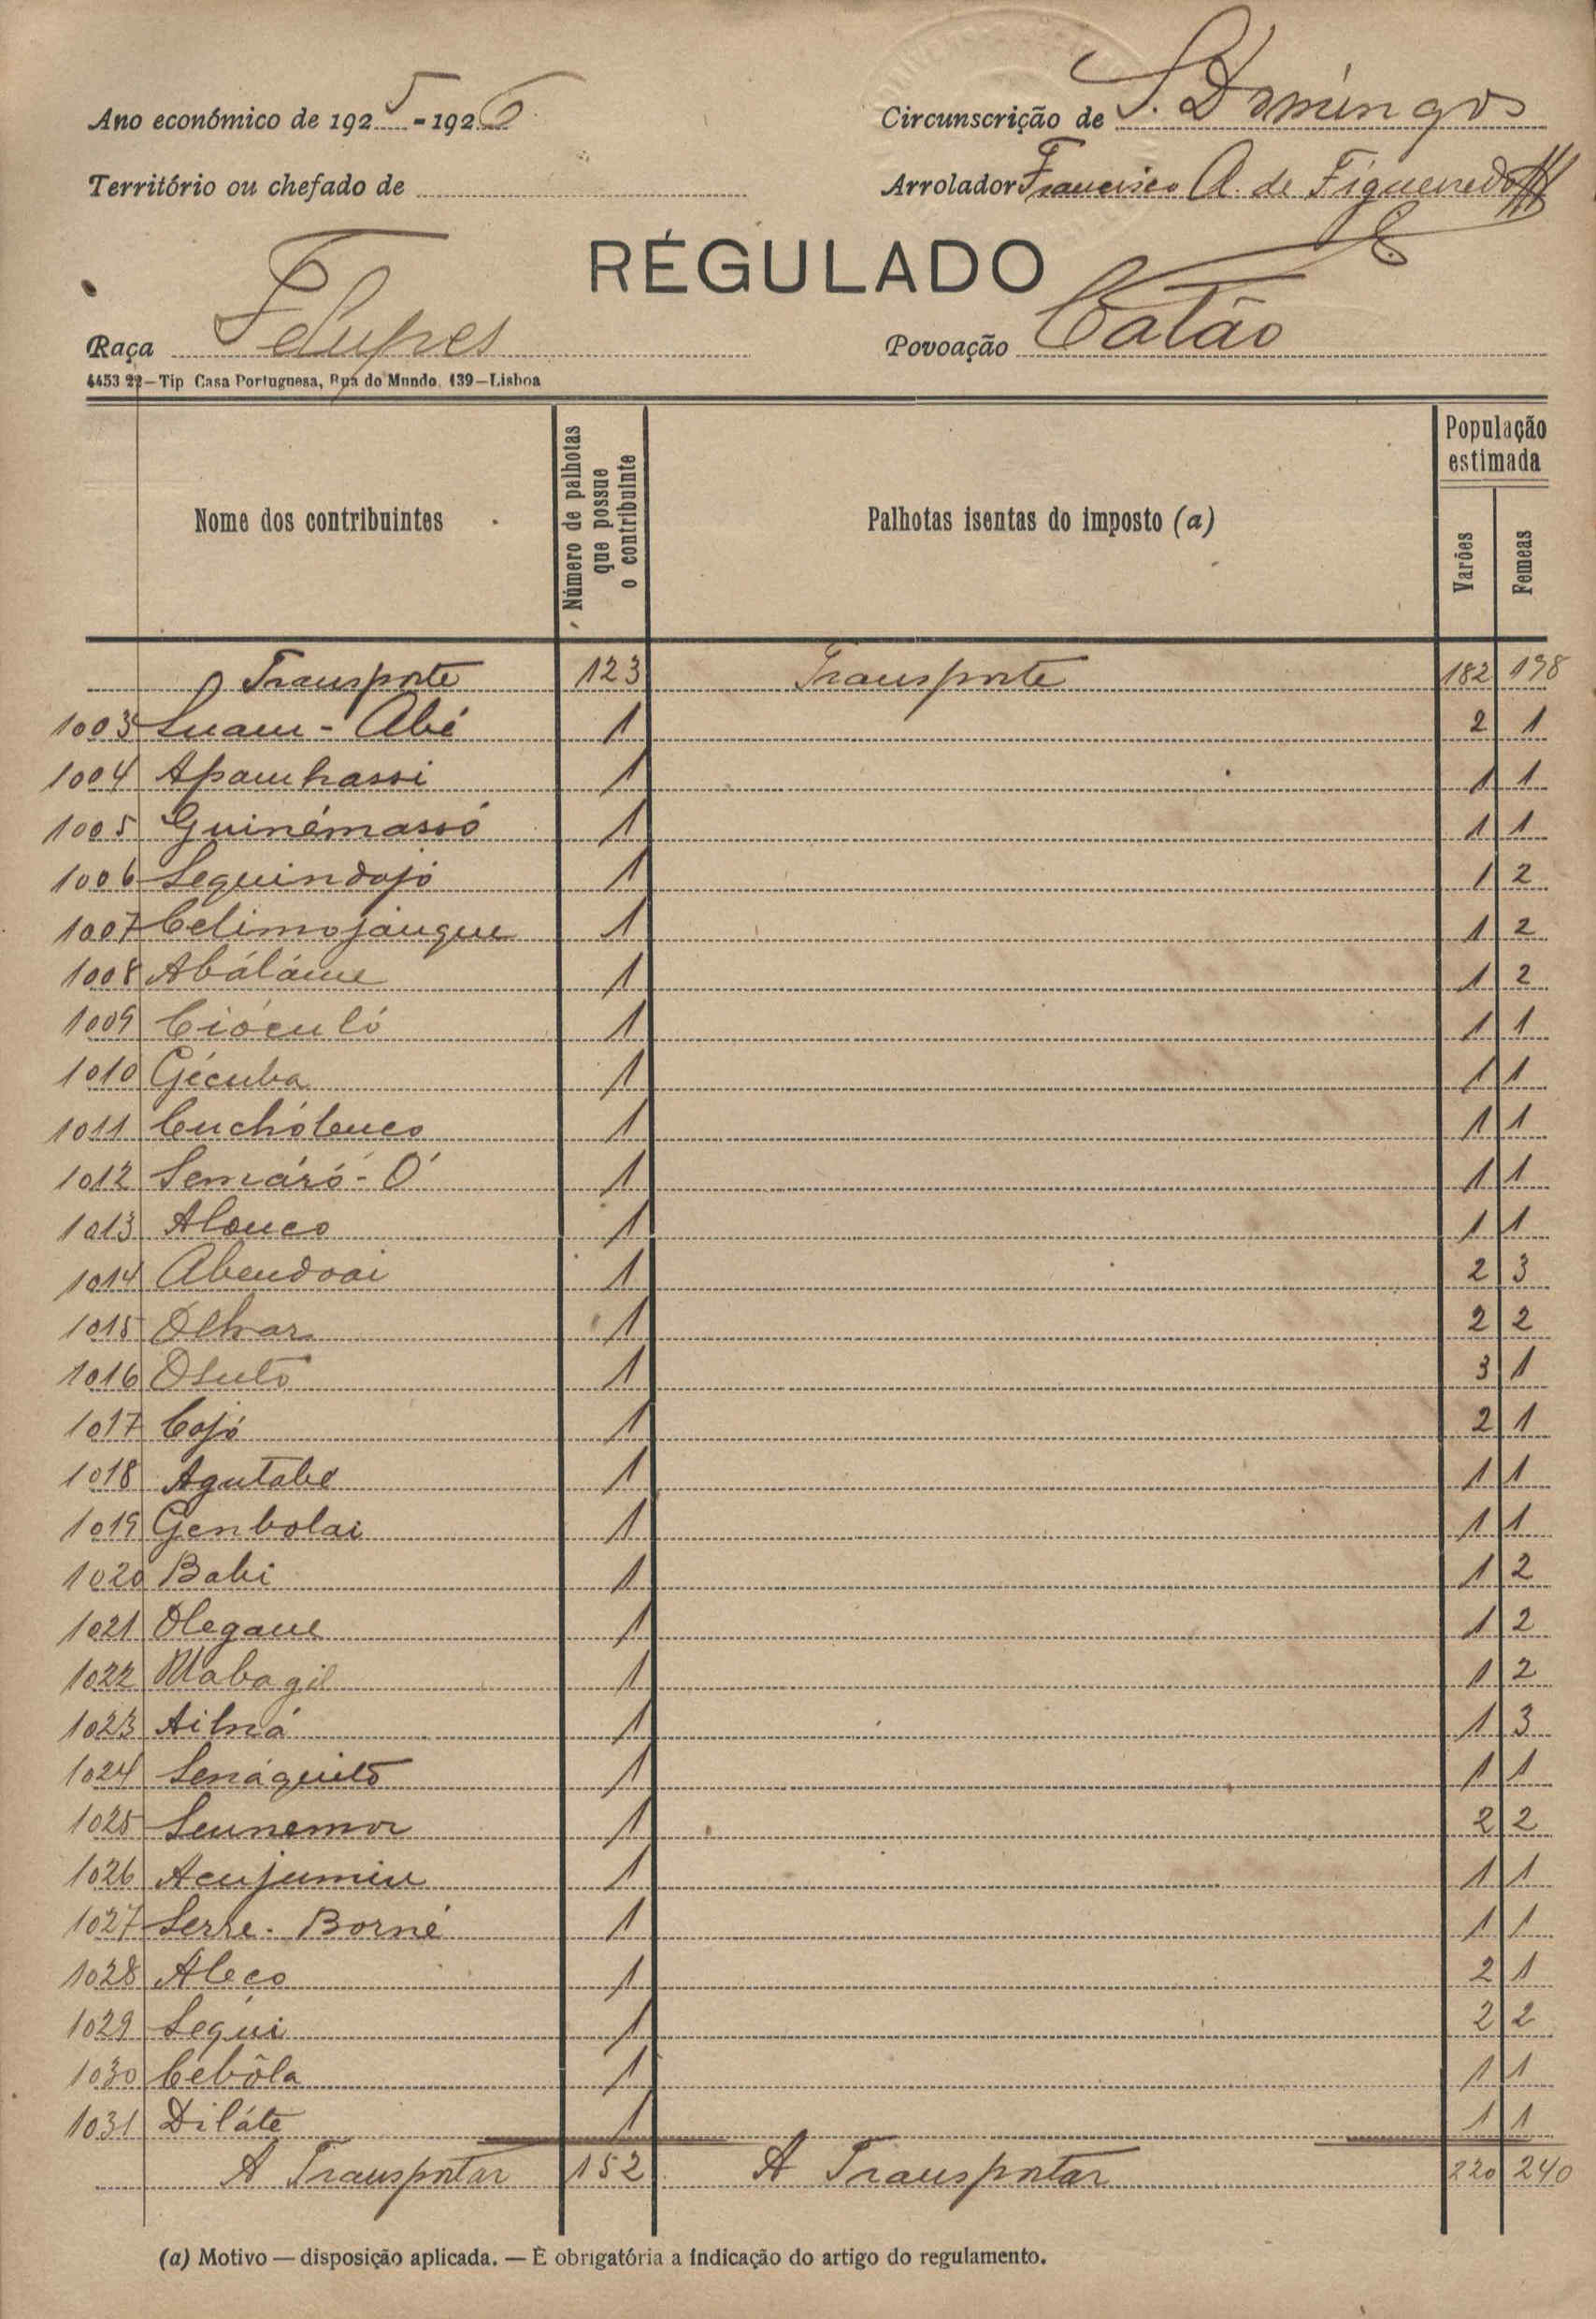 Ano económico de 1925-1926
Circunscrição de S. Domingos
Território ou chefado de
Arrolador Francisco A. de Figueiredo
RÉGULADO
Raça Felupes
Povoação Catão
4453 22—Tip Casa Portuguesa, Rua do Mundo, 139—Lisboa
Nome dos contribuintes
Número de palhotas que possue o contribuinte
Palhotas isentas do imposto (a)
População estimada
Varões Femeas
Transporte 123 Transporte 182 198
1003 Luam-Abé 1 2 1
1004 Apamhassi 1 1 1
1005 Guinémassó 1 1 1
1006 Seguindojó 1 1 2
1007 Celimojangue 1 1 2
1008 Abáláme 1 1 2
1009 Cióculó 1 1 1
1010 Gécuba 1 1 1
1011 1 1 1
1012 Semáró-Ó 1 1 1
1013 Alouco 1 1 1
1014 Abendoai 1 2 3
1015 1 2 2
1016 Osuto 1 3 1
1017 Cojó 1 2 1
1018 Agutabe 1 1 1
1019 Genbolai 1 1 1
1020 Babi 1 1 2
1021 Olegaue 1 1 2
1022 Mabagil 1 1 2
1023 1 1 3
1024 Senáquitó 1 1 1
1025 Seunemor 1 2 2
1026 Acujumiu 1 1 1
1027 Serre-Borné 1 1 1
1028 Aleco 1 2 1
1029 Segui 1 2 2
1030 Cebôla 1 1 1
1031 Diláte 1 1 1
A Transportar 152 A Transportar 220 240
(a) Motivo — disposição aplicada. — È obrigatória a indicação do artigo do regulamento.